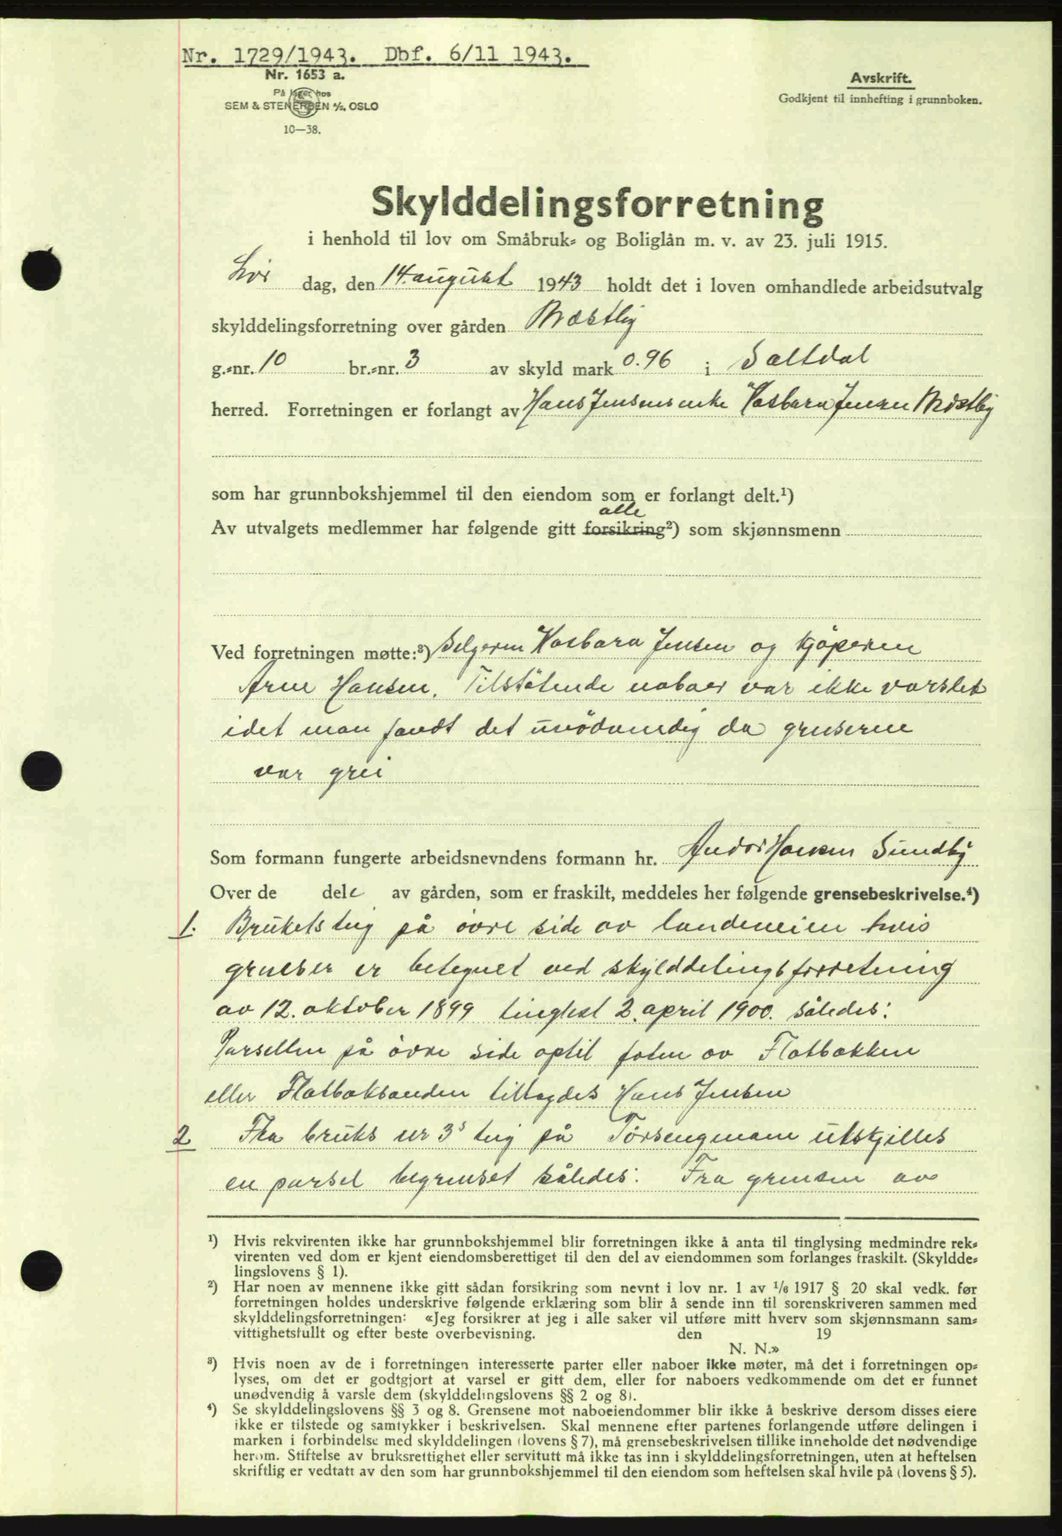 Nr. 1729/1943. Dbf. 6/11 1943.
Nr. 1653 a.
På lager hos
SEM & STENERSEN A/S, OSLO
10—38.
Avskrift.
Godkjent til innhefting i grunnboken.
Skylddelingsforretning
i henhold til lov om Småbruk= og Boliglån m. v. av 23. juli 1915.
Lør dag, den 14. august 1943 holdt det i loven omhandlede arbeidsutvalg
skylddelingsforretning over gården Mæstby
g.=nr. 10 br.=nr. 3 av skyld mark 0.96 i Saltdal
herred. Forretningen er forlangt av Hans Jensens enke Barbara Jensen Mæstby
som har grunnbokshjemmel til den eiendom som er forlangt delt.¹)
alle
Av utvalgets medlemmer har følgende gitt forsikring²) som skjønnsmenn
Ved forretningen møtte:³) Selgeren Barbara Jensen og kjøperen
Arne Hansen. Tilstøtende naboer var ikke varslet
idet man fandt det unødvendig da grensene
var grei
Som formann fungerte arbeidsnevndens formann hr. Hansen Sundby
Over de dele av gården, som er fraskilt, meddeles her følgende grensebeskrivelse.⁴)
1. Brukets teig på øvre side av landeveien hvis
grenser er betegnet ved skylddelingsforretning
av 12. oktober 1899 tinglest 2. april 1900. således:
Parsellen på øvre side optil foten av Flatbakken
eller Flatbaksanden tillagdes Hans Jensen
2 Fra bruks nr 3s teig på utskilles
en parsel begrenset således: Fra grensen av
¹) Hvis rekvirenten ikke har grunnbokshjemmel blir forretningen ikke å anta til tinglysing medmindre rek=
virenten ved dom er kjent eiendomsberettiget til den del av eiendommen som forlanges fraskilt. (Skyldde=
lingslovens § 1).
²) Har noen av mennene ikke gitt sådan forsikring som nevnt i lov nr. 1 av 1/6 1917 § 20 skal vedk. før
forretningen holdes underskrive følgende erklæring som blir å sende inn til sorenskriveren sammen med
skylddelingsforretningen: «Jeg forsikrer at jeg i alle saker vil utføre mitt hverv som skjønnsmann sam=
vittighetsfullt og efter beste overbevisning. den 19
N. N.»
³) Hvis noen av de i forretningen interesserte parter eller naboer ikke møter, må det i forretningen op=
lyses, om det er godtgjort at varsel er gitt dem, eller for naboers vedkommende om det er funnet
unødvendig å varsle dem (skylddelingslovens §§ 2 og 8).
⁴) Se skylddelingslovens §§ 3 og 8. Grensene mot naboeiendommer blir ikke å beskrive dersom disses eiere
ikke er tilstede og samtykker i beskrivelsen. Skal mennene efter partenes forlangende utføre delingen i
marken i forbindelse med skylddelingen (lovens § 7), må grensebeskrivelsen tillike inneholde det nødvendige
herom. Stiftelse av bruksrettighet eller servitutt må ikke tas inn i skylddelingsforretningen, uten at heftelsen
skriftlig er vedtatt av den som har grunnbokshjemmel til den eiendom som heftelsen skal hvile på (lovens § 5).